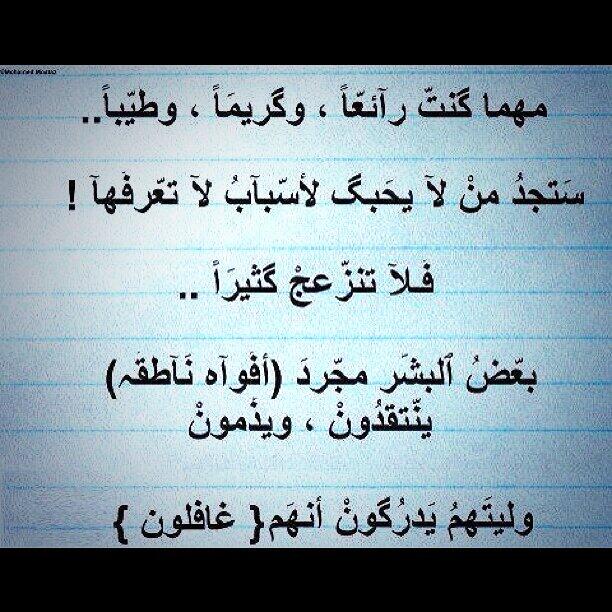 ©Mohammed Moataz
مهما گنتّ رآئعّاً ، وگريمَاً ، وطيّباً..
سَتجدُ منْ لآ يحَبگ لأسّبآبُ لآ تعّرفَهآ !
فَلآ تنزّعجْ گثيرَاً ..
بعّضُ ٱلبشَر مجّردَ (أفَوآه نَآطقَہ)
ينّتقدُونْ ، ويذَمونْ
وليتَهمُ يَدرُگونْ أنهَم{ غافلون }